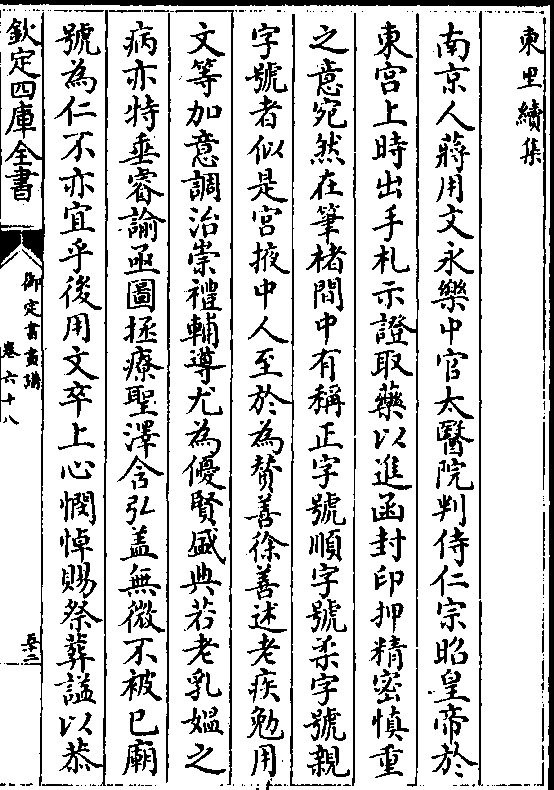 東里續集
南京人蔣用文永樂中官太醫院判侍仁宗昭皇帝於
東宫上時出手札示證取藥以進函封印押精密慎重
之意宛然在筆楮間中有稱正字號順字號柔字號親
字號者似是宫掖中人至於為贊善徐善述老疾勉用
文等加意調治崇禮輔導尤為優賢盛典若老乳媼之
病亦特垂睿諭亟圖拯療聖澤含弘蓋無微不被已廟
號為仁不亦宜乎後用文卒上心憫悼賜祭葬諡以恭
欽定四庫全書
御定書畫譜
卷六十八
至三